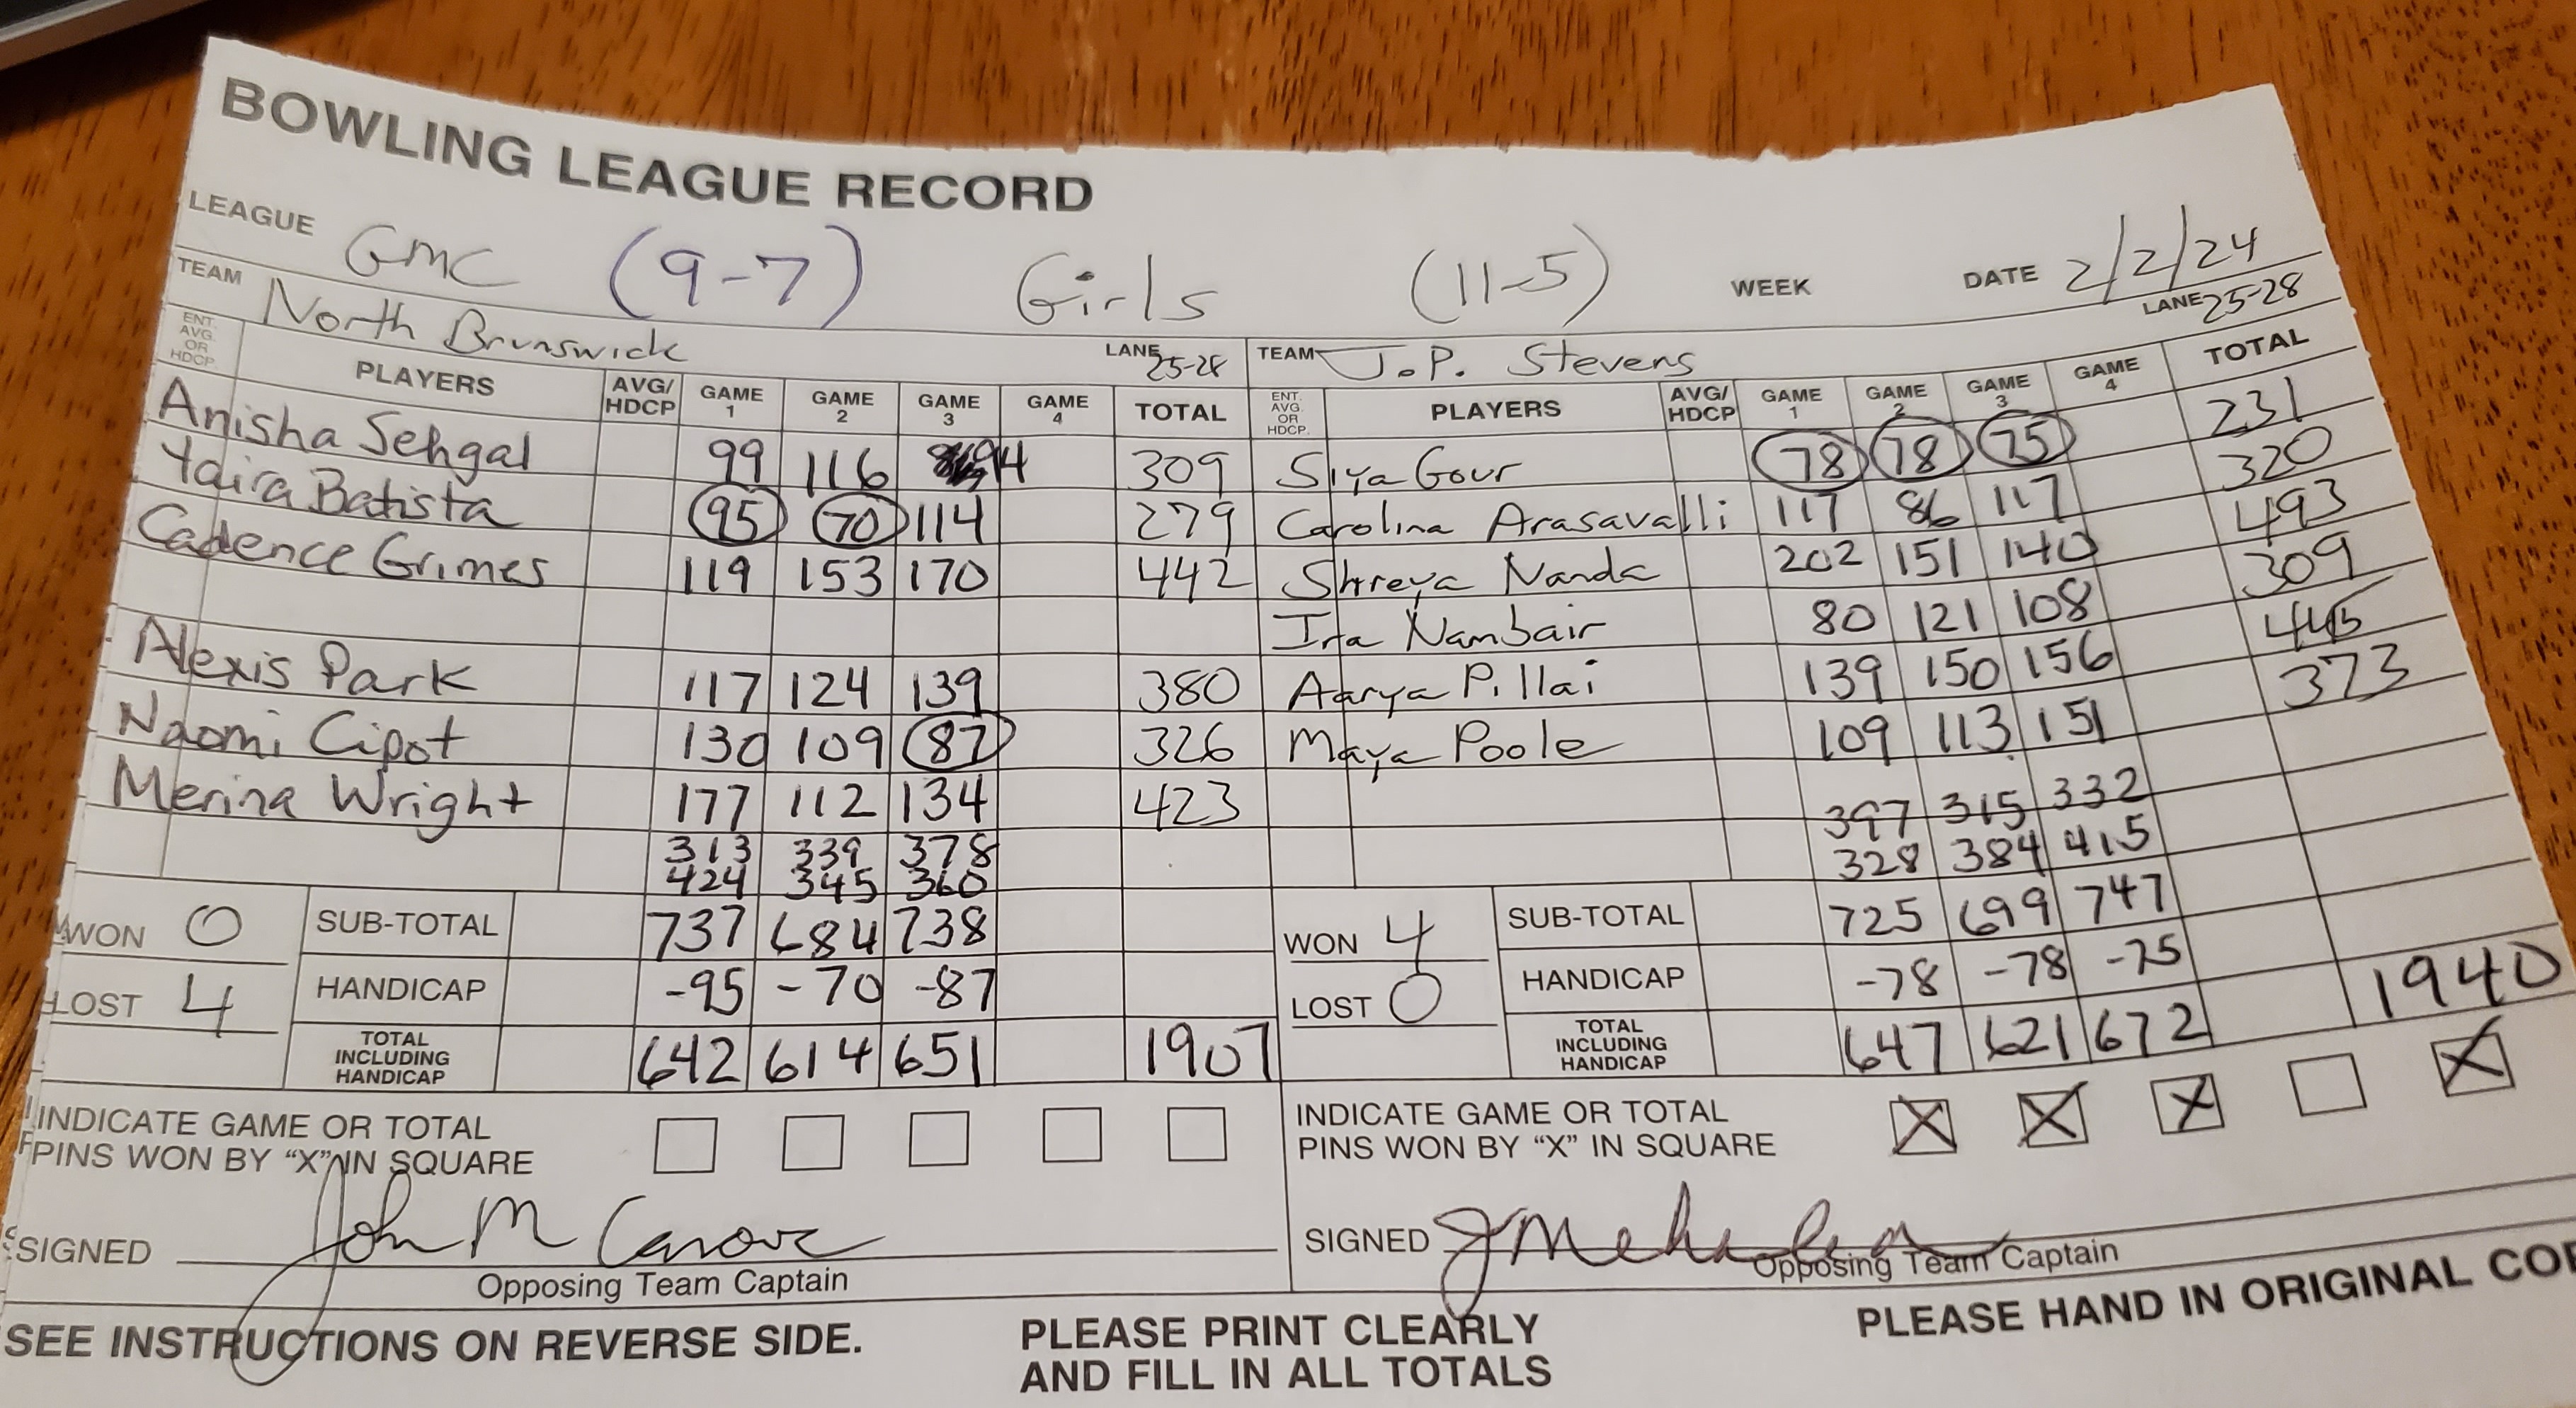 BOWLING LEAGUE RECORD
LEAGUE GMC (9-7) Girls (11-5) WEEK DATE 2/2/24
TEAM North Brunswick LANE 25-28 TEAM J.P. Stevens LANE 25-28
ENT. AVG. OR HDCP. PLAYERS AVG/HDCP GAME 1 GAME 2 GAME 3 GAME 4 TOTAL ENT. AVG. OR HDCP. PLAYERS AVG/HDCP GAME 1 GAME 2 GAME 3 GAME 4 TOTAL
Anisha Sehgal 99 116 94 309 Siya Gour 78 78 75 231
Yaira Batista 95 70 114 279 Carolina Arasavalli 117 86 117 320
Cadence Grimes 119 153 170 442 Shreya Nanda 202 151 140 493
Ira Nambair 80 121 108 309
Alexis Park 117 124 139 380 Aarya Pillai 139 150 156 445
Naomi Cipot 130 109 87 326 Maya Poole 109 113 151 373
Merina Wright 177 112 134 423 397 315 332
313 339 378 328 384 415
424 345 360
WON 0 SUB-TOTAL 737 684 738 WON 4 SUB-TOTAL 725 699 747
LOST 4 HANDICAP -95 -70 -87 LOST 0 HANDICAP -78 -78 -75
TOTAL INCLUDING HANDICAP 642 614 651 1907 TOTAL INCLUDING HANDICAP 647 621 672 1940
INDICATE GAME OR TOTAL INDICATE GAME OR TOTAL X X X X
PINS WON BY “X” IN SQUARE PINS WON BY “X” IN SQUARE
SIGNED John M SIGNED
Opposing Team Captain Opposing Team Captain
SEE INSTRUCTIONS ON REVERSE SIDE. PLEASE PRINT CLEARLY PLEASE HAND IN ORIGINAL
AND FILL IN ALL TOTALS